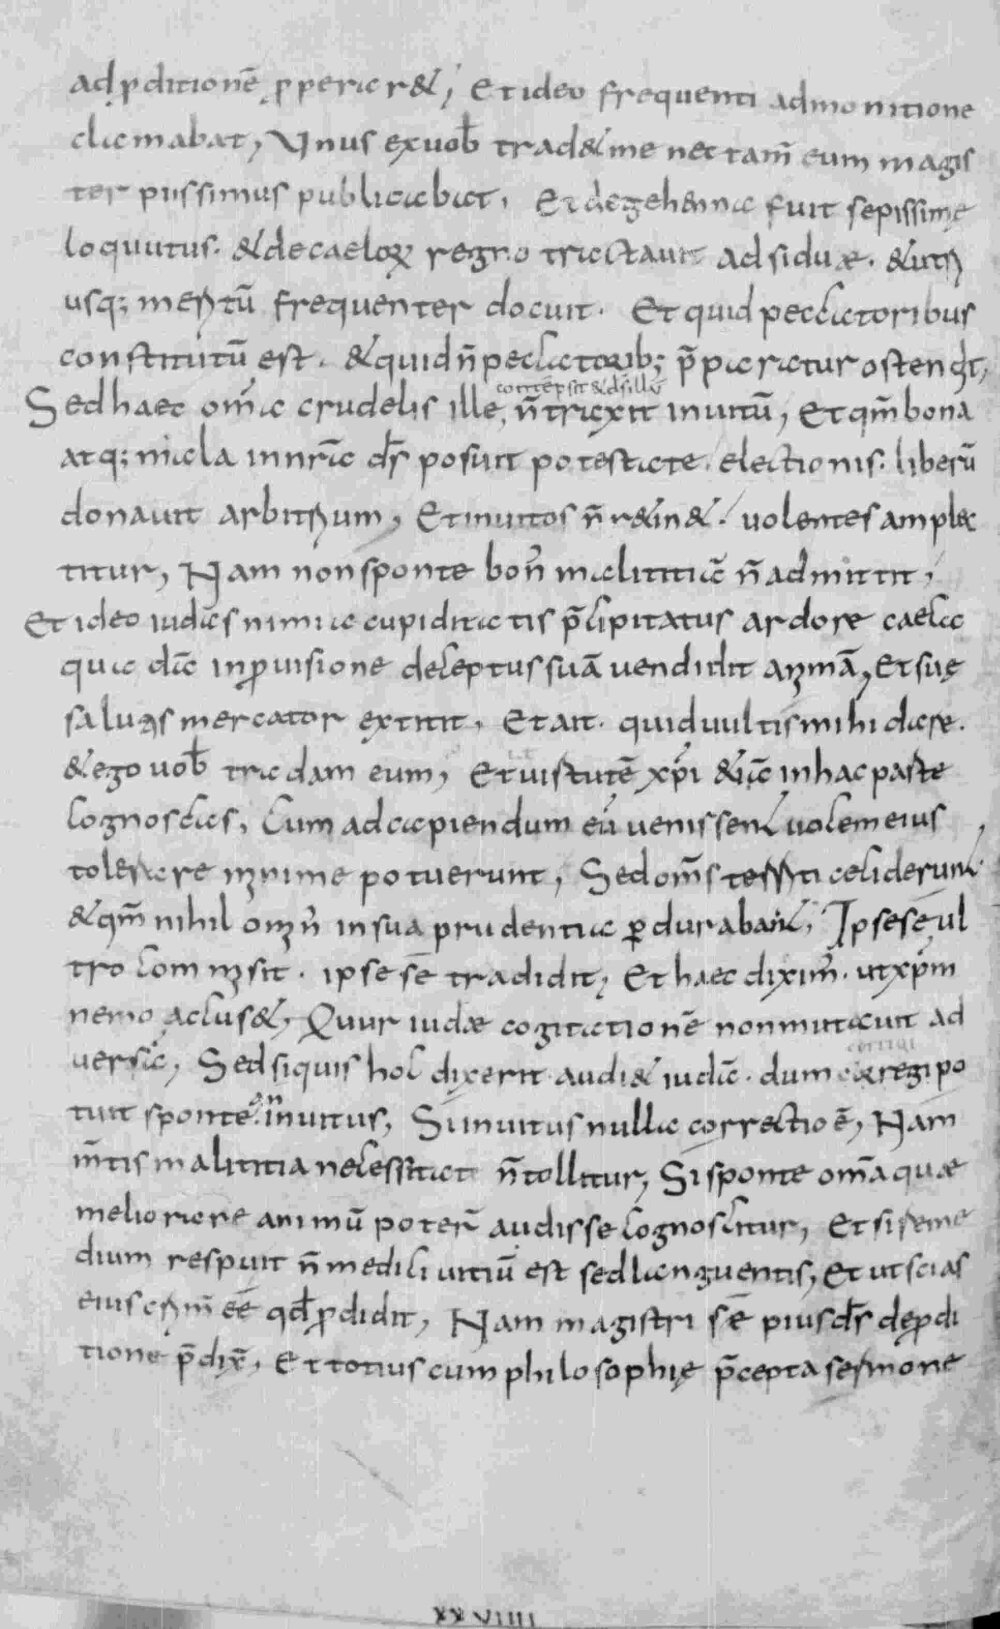 ad p̱ditionē p̱periar&; Et ideo frequenti admonitione
clamabat, Unus ex uob̄ trad& me nec tam̄ eum magis
ter piissimus publicabat, Et de gehenna fuit sepissimę
loquutus. & de caeloꝝ regno tractauit adsiduæ. & utꝝ
usq; meritū frequenter docuit. Et quid peccatoribus
constitutū est. & quid n̄ peccatorib; p̄paratur ostendit,
contēpsit &
Sed haec om̄a crudelis ille, n̄ traxit in uitū, Et qm̄ bona
atq; mala in nr̄a ds̄ posuit potestate. electionis. liberū
donauit arbitrium, Et inuitos n̄ r&in&. uolentes amplec
titur, Nam non sponte bon̄ malitiā n̄ admittit,
Et ideo iudas nimia cupiditatis p̄cipitatus ardore caeca
quadā inp̱uisione deceptus suā uendidit animā, Et suę
salutis mercator extitit, Et ait. quid uultis mihi dare.
& ego uob̄ tradam eum, Et uirtutē xp̄i &iā in hac parte
cognoscas, Cum ad capiendum eū uenissent uocem eius
tolerare minime potuerunt, Sed om̄s territi ceciderunt
& qm̄ nihil omn̄ in sua prudentia ꝑdurabant, Ipse se ul
tro commisit. ipse sē tradidit, Et haec dixim̄. ut xp̄m
nemo accus&, Quur iudæ cogitationē non mutauit ad
uersā, Sed siquis hoc dixerit audi& iudā. dum regi po
corrigi
tuit sponte an inuitus, Si inuitus nulla correctio ē, Nam
m̄tis malititia necessitate n̄ tollitur, Si sponte om̄a quæ
meliorare animū poter̄ audisse cognoscitur, Et si reme
dium respuit n̄ medici uitiū est sed languentis, Et ut scias
eius crim̄ eē qd̄ p̱didit, Nam magistri sē pius ds̄ de p̱di
tione p̄dix̄, Et totius cum philosophię p̄cepta sermone
XXVIIII